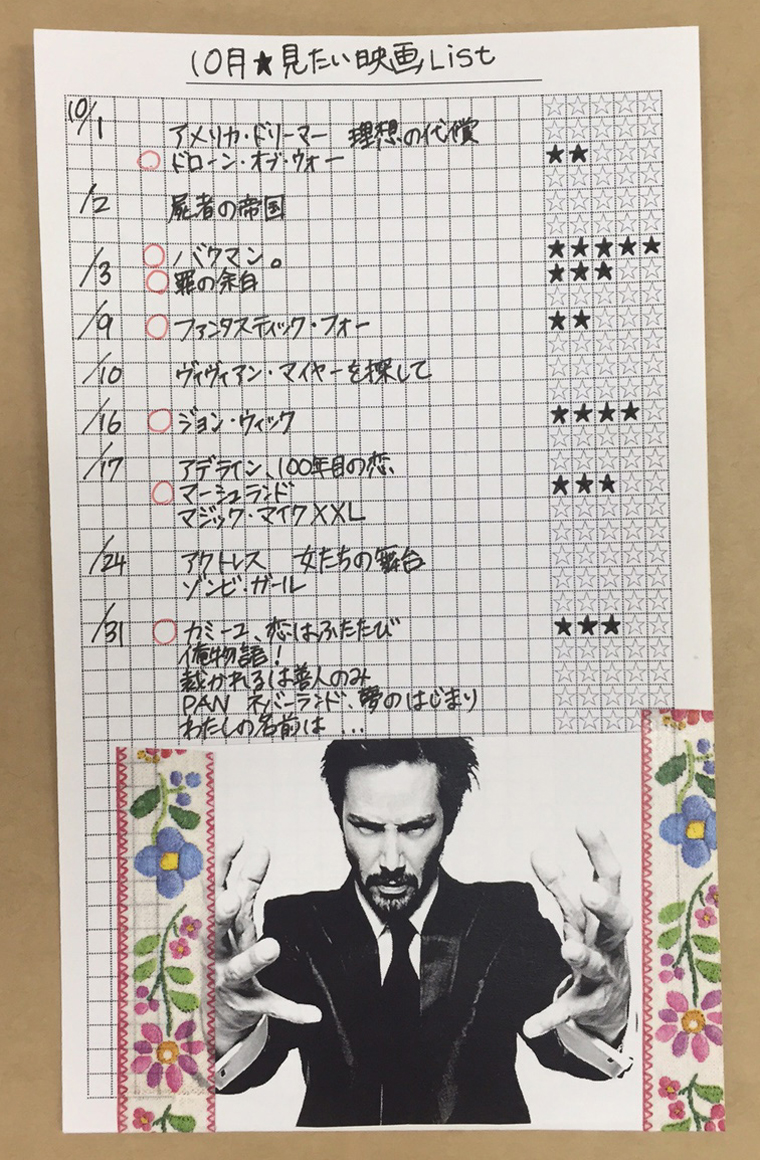 10月★見たい映画List
10/1
アメリカ・ドリーマー 理想の代償
○ドローン・オブ・ウォー ★★☆☆☆
/2 屍者の帝国
○バクマン。 ★★★★★
/3 ○罪の余白 ★★★☆☆
/9 ○ファンタスティック・フォー ★★☆☆☆
/10 ヴィヴィアン・マイヤーを探して
/16 ○ジョン・ウィック ★★★★☆
/17 アデライン、100年目の恋
○マーシュランド ★★★☆☆
マジック・マイクXXL
/24 アクトレス 女たちの舞台
ゾンビ・ガール
/31 ○カミーユ、恋はふたたび ★★★☆☆
俺物語!
裁かれるは善人のみ
PAN ネバーランド、夢のはじまり
わたしの名前は...